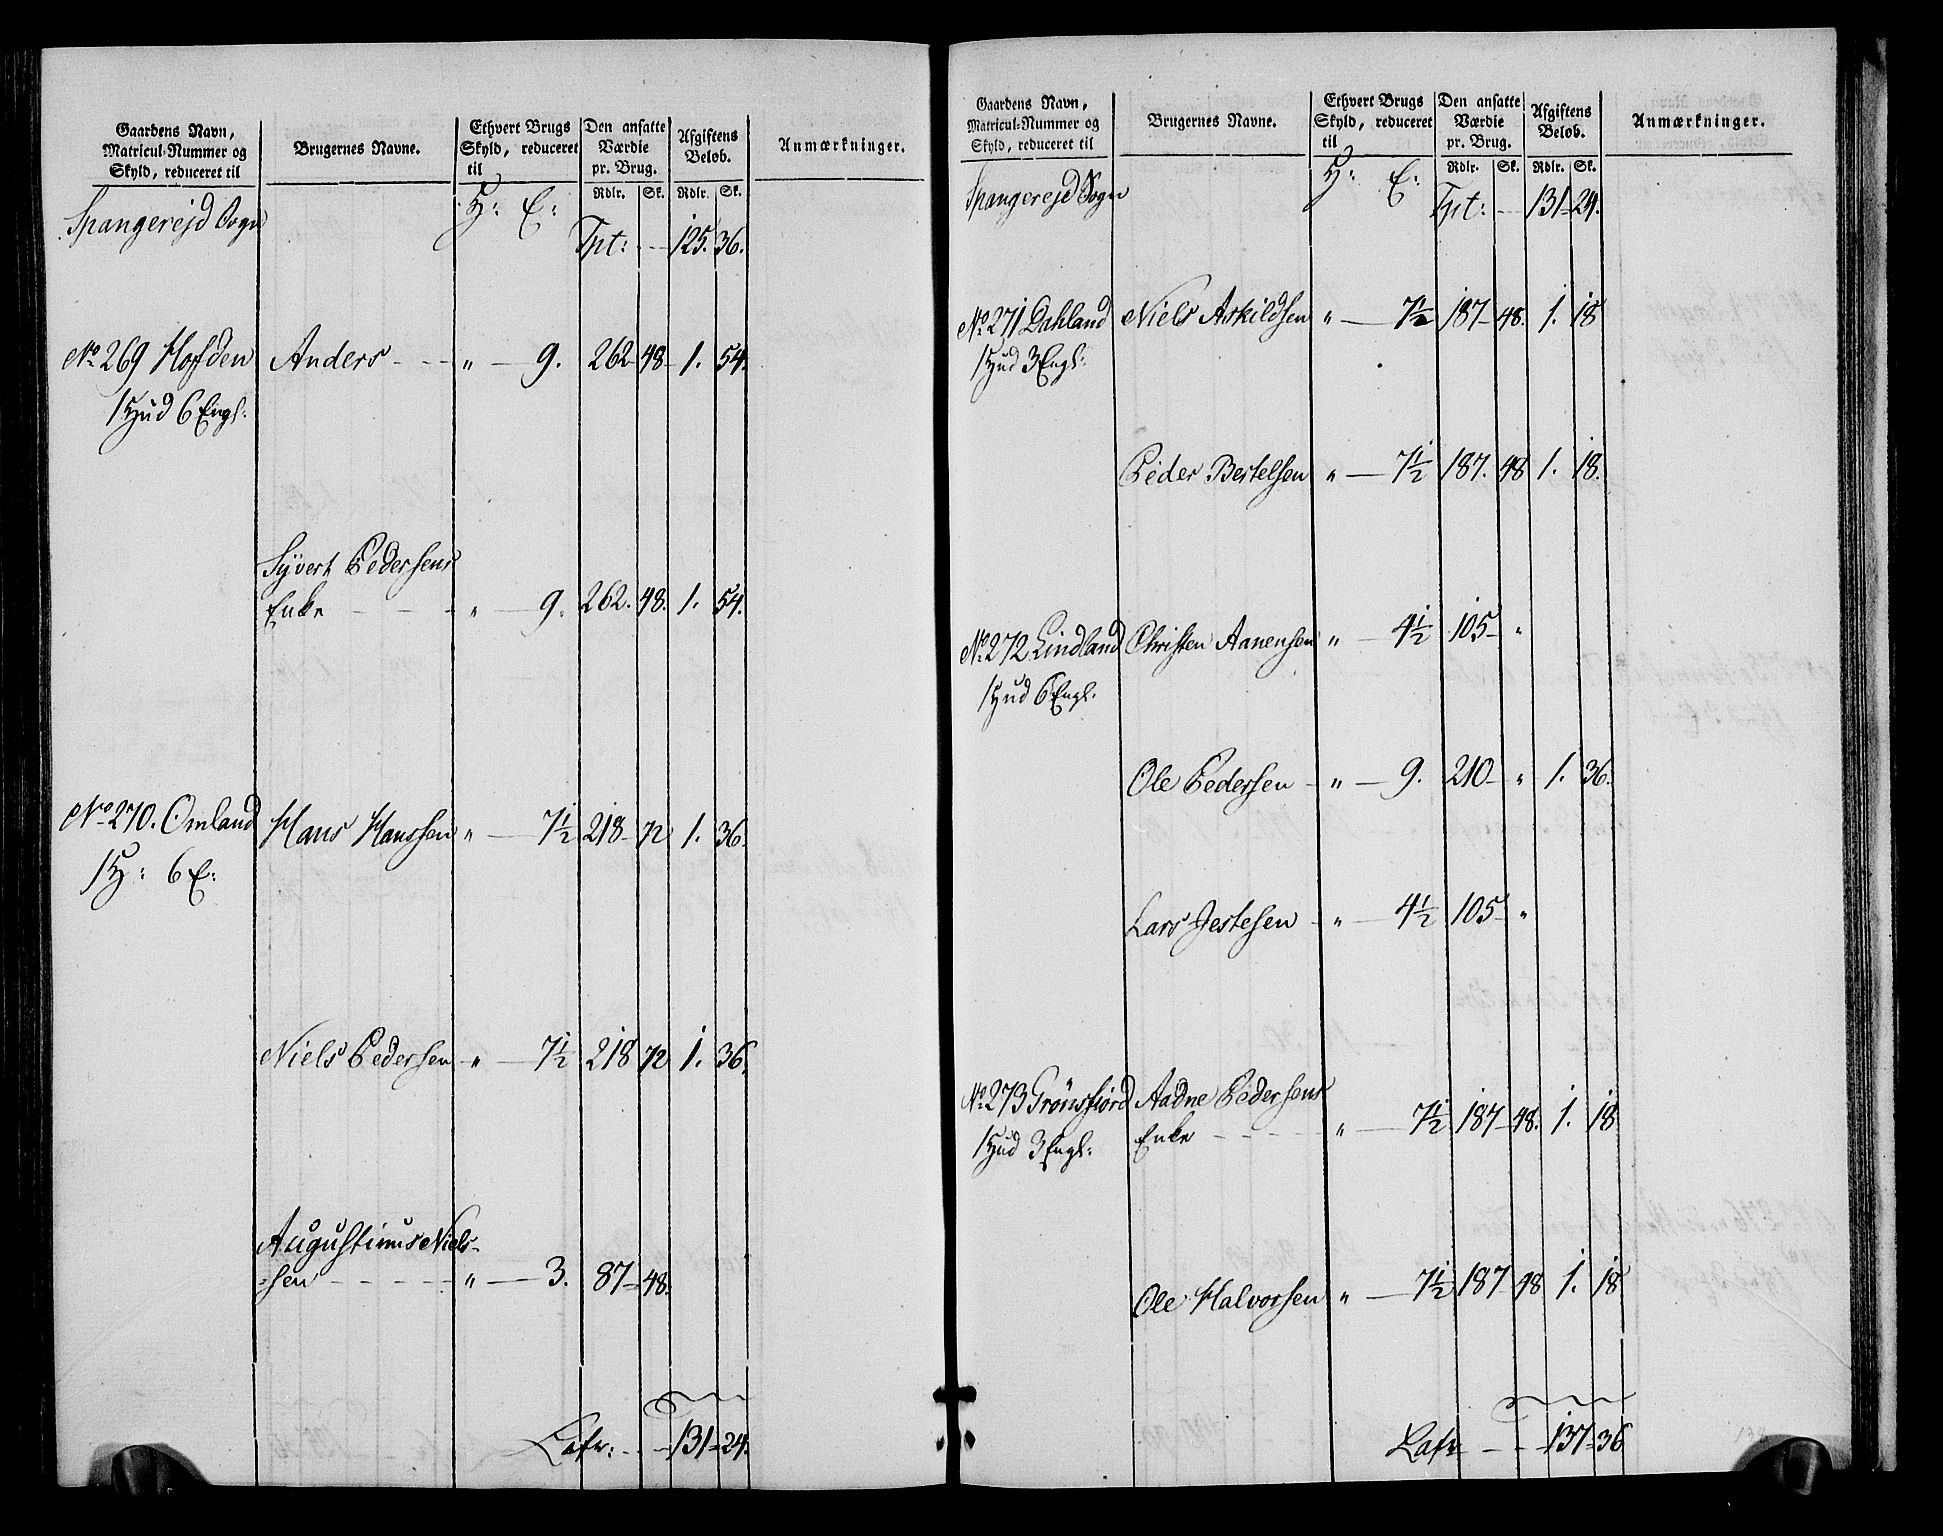 Gaardens Navn, Matricul-Nummer og Skyld, reduceret til | Brugernes Navne. | Ethvert Brugs Skyld, reduceret til | Den ansatte Værdie pr. Brug. Rdlr. Sk. | Afgiftens Beløb. Rdlr. Sk. | Anmærkninger.
Spangerejd Sogn H: E:
Tpt: 125. 36.
No 269 Hoffden Anders " 9. 262 48 1. 54.
1 Hud 6 Engl:
Syvert Pedersens
Enke " 9. 262. 48. 1. 54.
No 270. Omland Hans Hanssen " 7½ 218 72 1. 36.
1 H: 6 E:
Niels Pedersen " 7½ 218 72 1. 36.
Augustinus Niels-
sen " 3. 87 48.
Lafr: 131 24.
Gaardens Navn, Matricul-Nummer og Skyld, reduceret til | Brugernes Navne. | Ethvert Brugs Skyld, reduceret til | Den ansatte Værdie pr. Brug. Rdlr. Sk. | Afgiftens Beløb. Rdlr. Sk. | Anmærkninger.
Spangerejd Sogn H: E:
Tpt: 131 24.
No 271 Dahland Niels Askildsen " 7½ 187 48. 1. 18
1 Hud 3 Engl:
Peder Bertelsen " 7½ 187. 48 1. 18.
No 272 Lindland Christen Aanensen " 4½ 105 "
1 Hud 6 Engl.
Ole Pedersen " 9. 210 " 1. 36.
Lars Jestesen " 4½ 105 "
No 273 Grönsfiord Aadne Pedersens
1 Hud 3 Engl: Enke " 7½ 187 48. 1. 18
Ole Halvorsen " 7½ 187 48 1. 18
Lafr 137 36